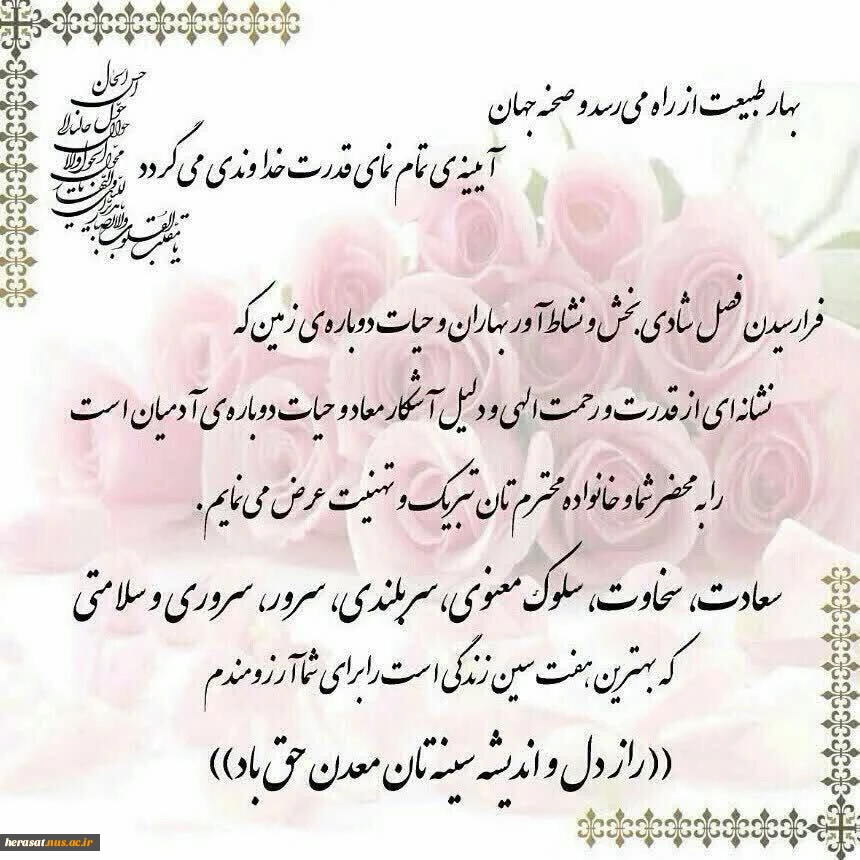 یا مقلب القلوب والابصار
یا مدبر اللیل والنهار
یا محول الحول والاحوال
حول حالنا الی
احسن الحال
بهار طبیعت از راه می رسد و صحنه جهان
آیینه ی تمام نمای قدرت خداوندی می گردد
فرارسیدن فصل شادی بخش و نشاط آور بهاران و حیات دوباره ی زمین که
نشانه ای از قدرت و رحمت الهی و دلیل آشکار معاد و حیات دوباره ی آدمیان است
را به محضر شما و خانواده محترم تان تبریک و تهنیت عرض می نمایم.
سعادت، سخاوت، سلوک معنوی، سربلندی، سرور، سروری و سلامتی
که بهترین هفت سین زندگی است را برای شما آرزومندم
((راز دل و اندیشه سینه تان معدن حق باد))
herasat.nus.ac.ir